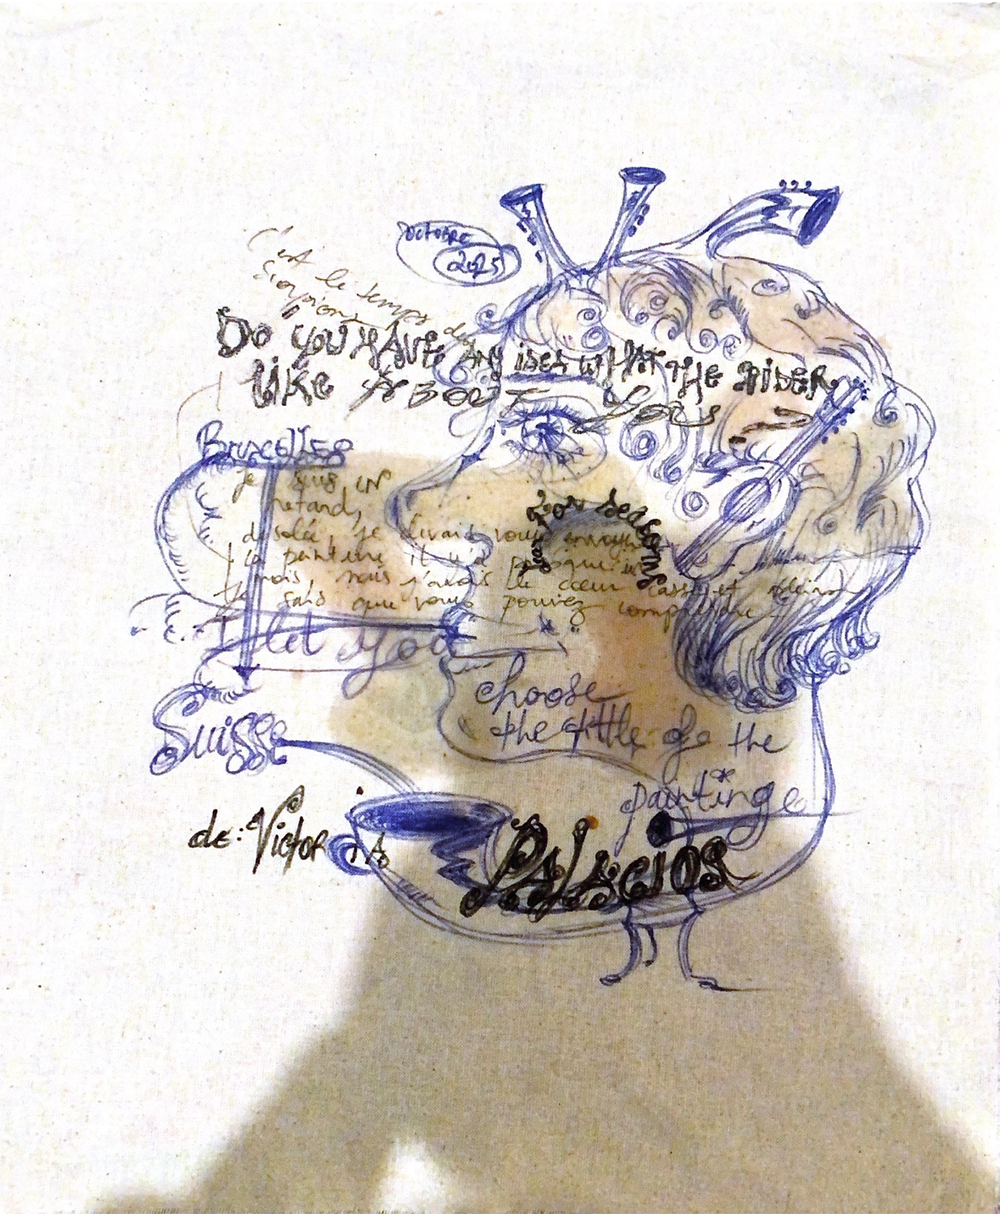 octobre
2025
C'est le temps du
Scorpion
Do you HAVE ANY idea WHAT THE RIDER
Like ABOUT You
Bruxelles
je suis en
retard,
désolé, je devais vous envoyer
la peinture il y a
mois, mais j'avais le cœur cassé et
je sais que vous pouvez comprendre
four seasons
I let you
choose
the tittle of the
painting
Suisse
de: Victor
PALACIOS